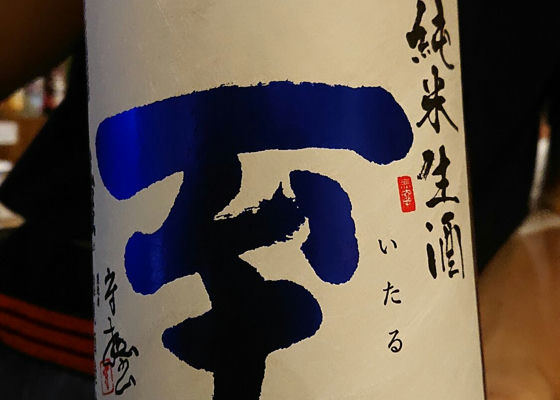 純米生酒
至
いたる